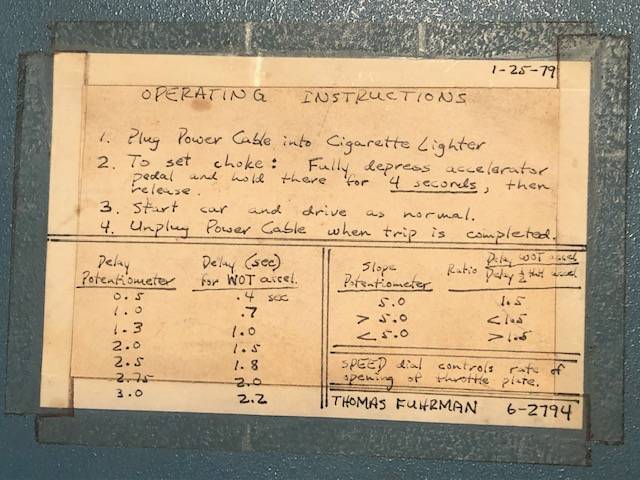 1-25-79
OPERATING INSTRUCTIONS
1. Plug Power Cable into Cigarette Lighter
2. To set choke: Fully depress accelerator
pedal and hold there for 4 seconds, then
release.
3. Start car and drive as normal.
4. Unplug Power Cable when trip is completed.
Delay Delay (sec)
Potentiometer for WOT accel.
0.5 .4 sec
1.0 .7
1.3 1.0
2.0 1.5
2.5 1.8
2.75 2.0
3.0 2.2
Slope Ratio Delay WOT accel
Potentiometer Delay ½ thot accel
5.0 1.5
> 5.0 < 1.5
< 5.0 > 1.5
SPEED dial controls rate of
opening of throttle plate.
THOMAS FUHRMAN 6-2794